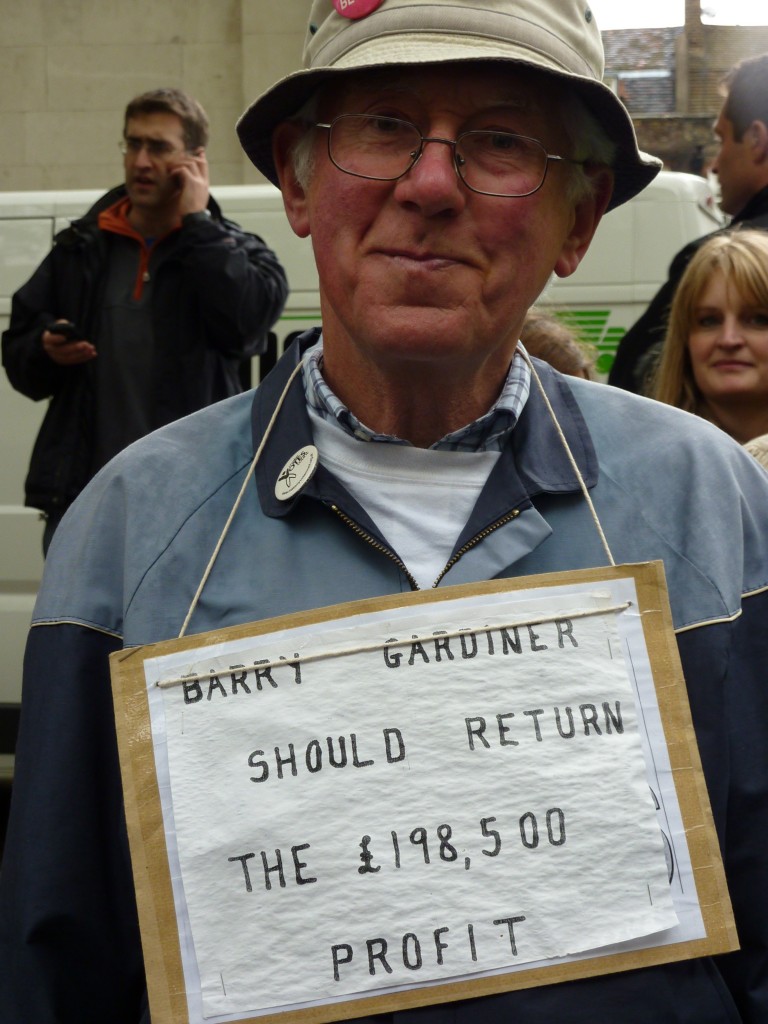 BE
BARRY GARDINER
SHOULD RETURN
THE £198,500
PROFIT